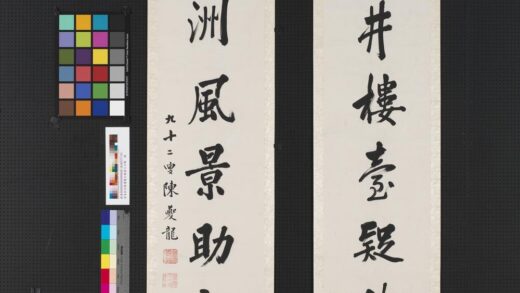 井樓臺疑
洲風景助
九十二叟陳夔龍